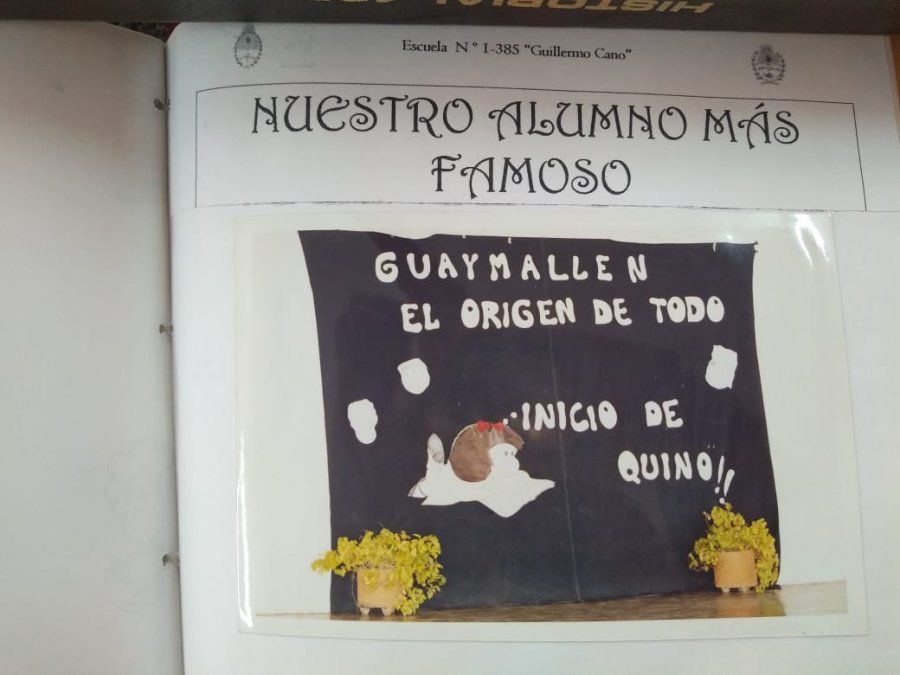 HISTORIAL
Escuela N º 1-385 “Guillermo Cano”
NUESTRO ALUMNO MÁS
FAMOSO
GUAYMALLEN
EL ORIGEN DE TODO
..INICIO DE
QUINO!!